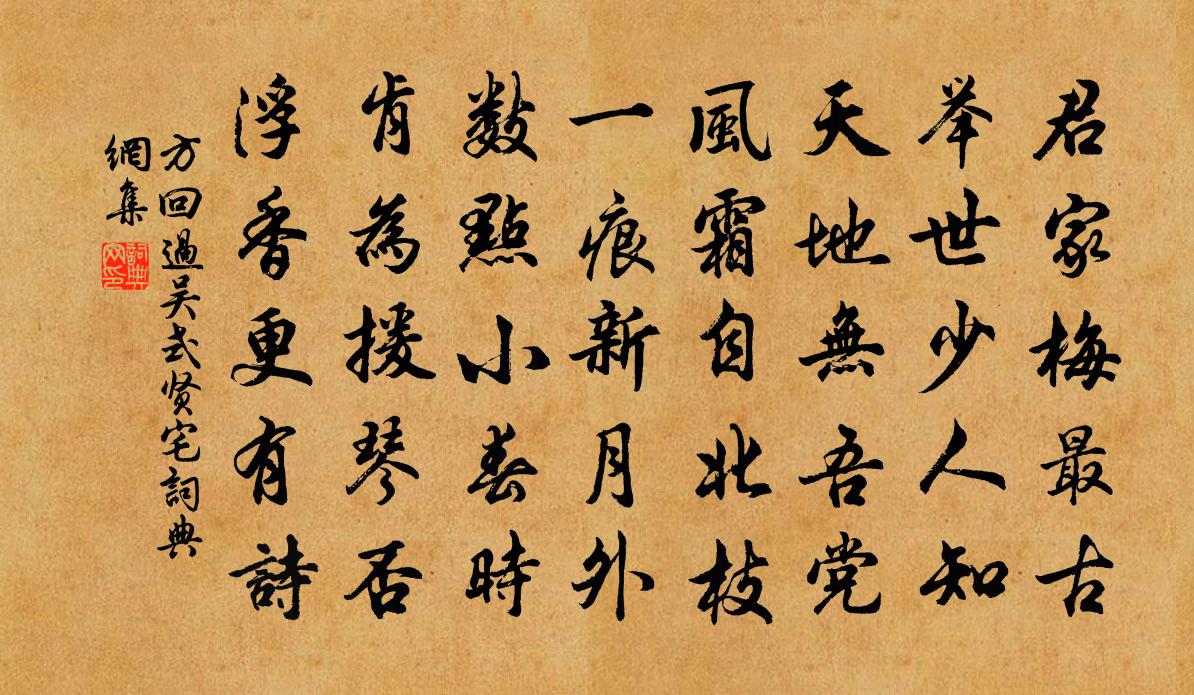 君家梅最古
举世少人知
天地無吾党
風霜自北枝
一痕新月外
數點小春時
肯為援琴否
浮香更有詩
方回過吴式贤宅詞典
網集
詞典
网印